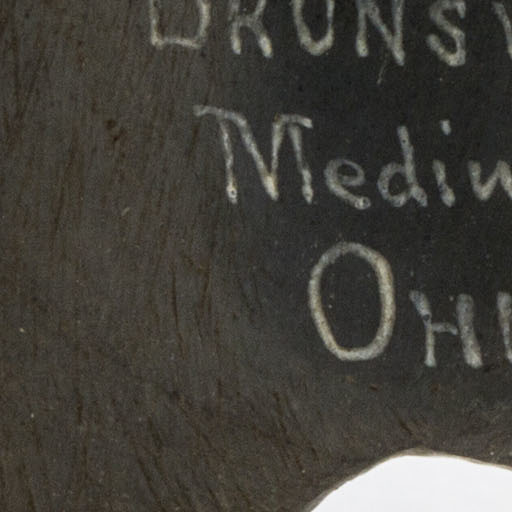 BRUNS
Mediu
OHI